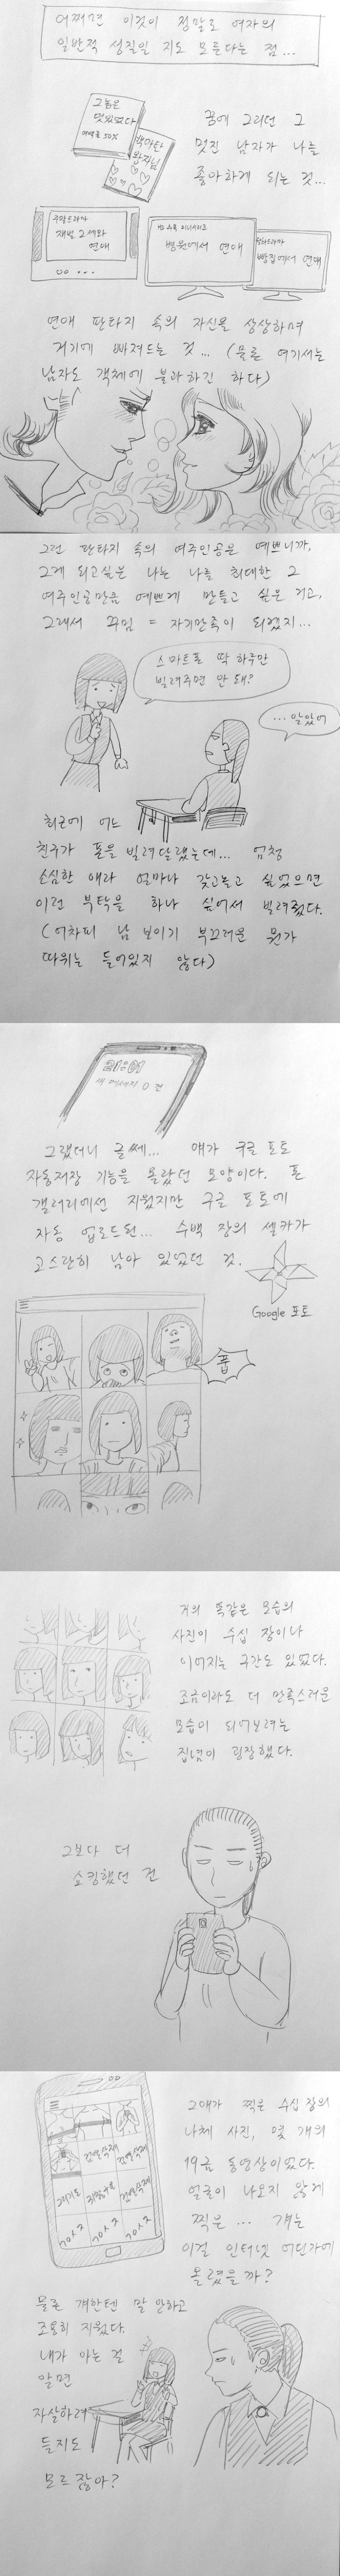 어쩌면 이것이 정말로 여자의
일반적 성질일 지도 모른다는 점...
그놈은
멋있었다
여백률 50%
백마탄
왕자님
꿈에 그리던 그
멋진 남자가 나를
좋아하게 되는 것...
주말드라마
재벌 2세와
연애
HD 수목 미니시리즈
병원에서 연애
일일드라마
빵집에서 연애
연애 판타지 속의 자신을 상상하며
거기에 빠져드는 것... (물론 여기서는
남자도 객체에 불과하긴 하다)
그런 판타지 속의 여주인공은 예쁘니까,
그게 되고싶은 나는 나를 최대한 그
여주인공만큼 예쁘게 만들고 싶은 거고,
그래서 꾸밈 = 자기만족이 되겠지...
스마트폰 딱 하루만
빌려주면 안 돼?
...알았어
최근에 어느
친구가 폰을 빌려달랬는데... 엄청
소심한 애라 얼마나 갖고놀고 싶었으면
이런 부탁을 하나 싶어서 빌려줬다.
(어차피 남 보이기 부끄러운 뭔가
따위는 들어있지 않다)
21:01
새 메세지 0건
그랬더니 글쎄... 얘가 구글 포토
자동저장 기능을 몰랐던 모양이다. 폰
갤러리에선 지웠지만 구글 포토에
자동 업로드된... 수백 장의 셀카가
고스란히 남아 있었던 것.
Google 포토
풉
거의 똑같은 모습의
사진이 수십 장이나
이어지는 구간도 있었다.
조금이라도 더 만족스러운
모습이 되어보려는
집념이 굉장했다.
그보다 더
쇼킹했던 건
검열삭제
검열삭제
검열삭제
그애가 찍은 수십 장의
나체 사진, 몇 개의
19금 동영상이었다.
얼굴이 나오지 않게
찍은... 걔는
이걸 인터넷 어딘가에
올렸을까?
물론 걔한텐 말 안하고
조용히 지웠다.
내가 아는 걸
알면
자살하려
들지도
모르잖아?